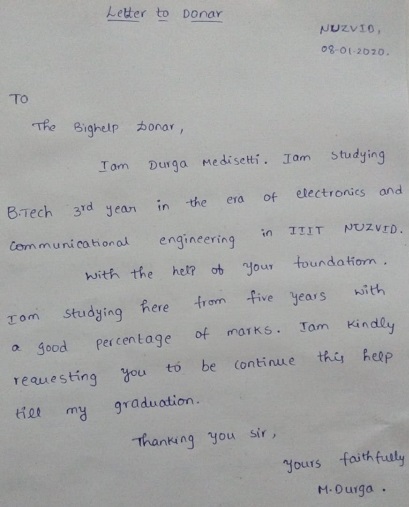 Letter to Donar
NUZVID,
08-01-2020.
TO
The Bighelp Donar,
Iam Durga Medisetti. Iam studying
B.Tech 3rd year in the era of electronics and
communicational engineering in IIIT NUZVID.
With the help of your foundation.
Iam studying here from five years with
a good percentage of marks. Iam kindly
requesting you to be continue this help
till my graduation.
Thanking you sir,
yours faithfully
M.Durga.